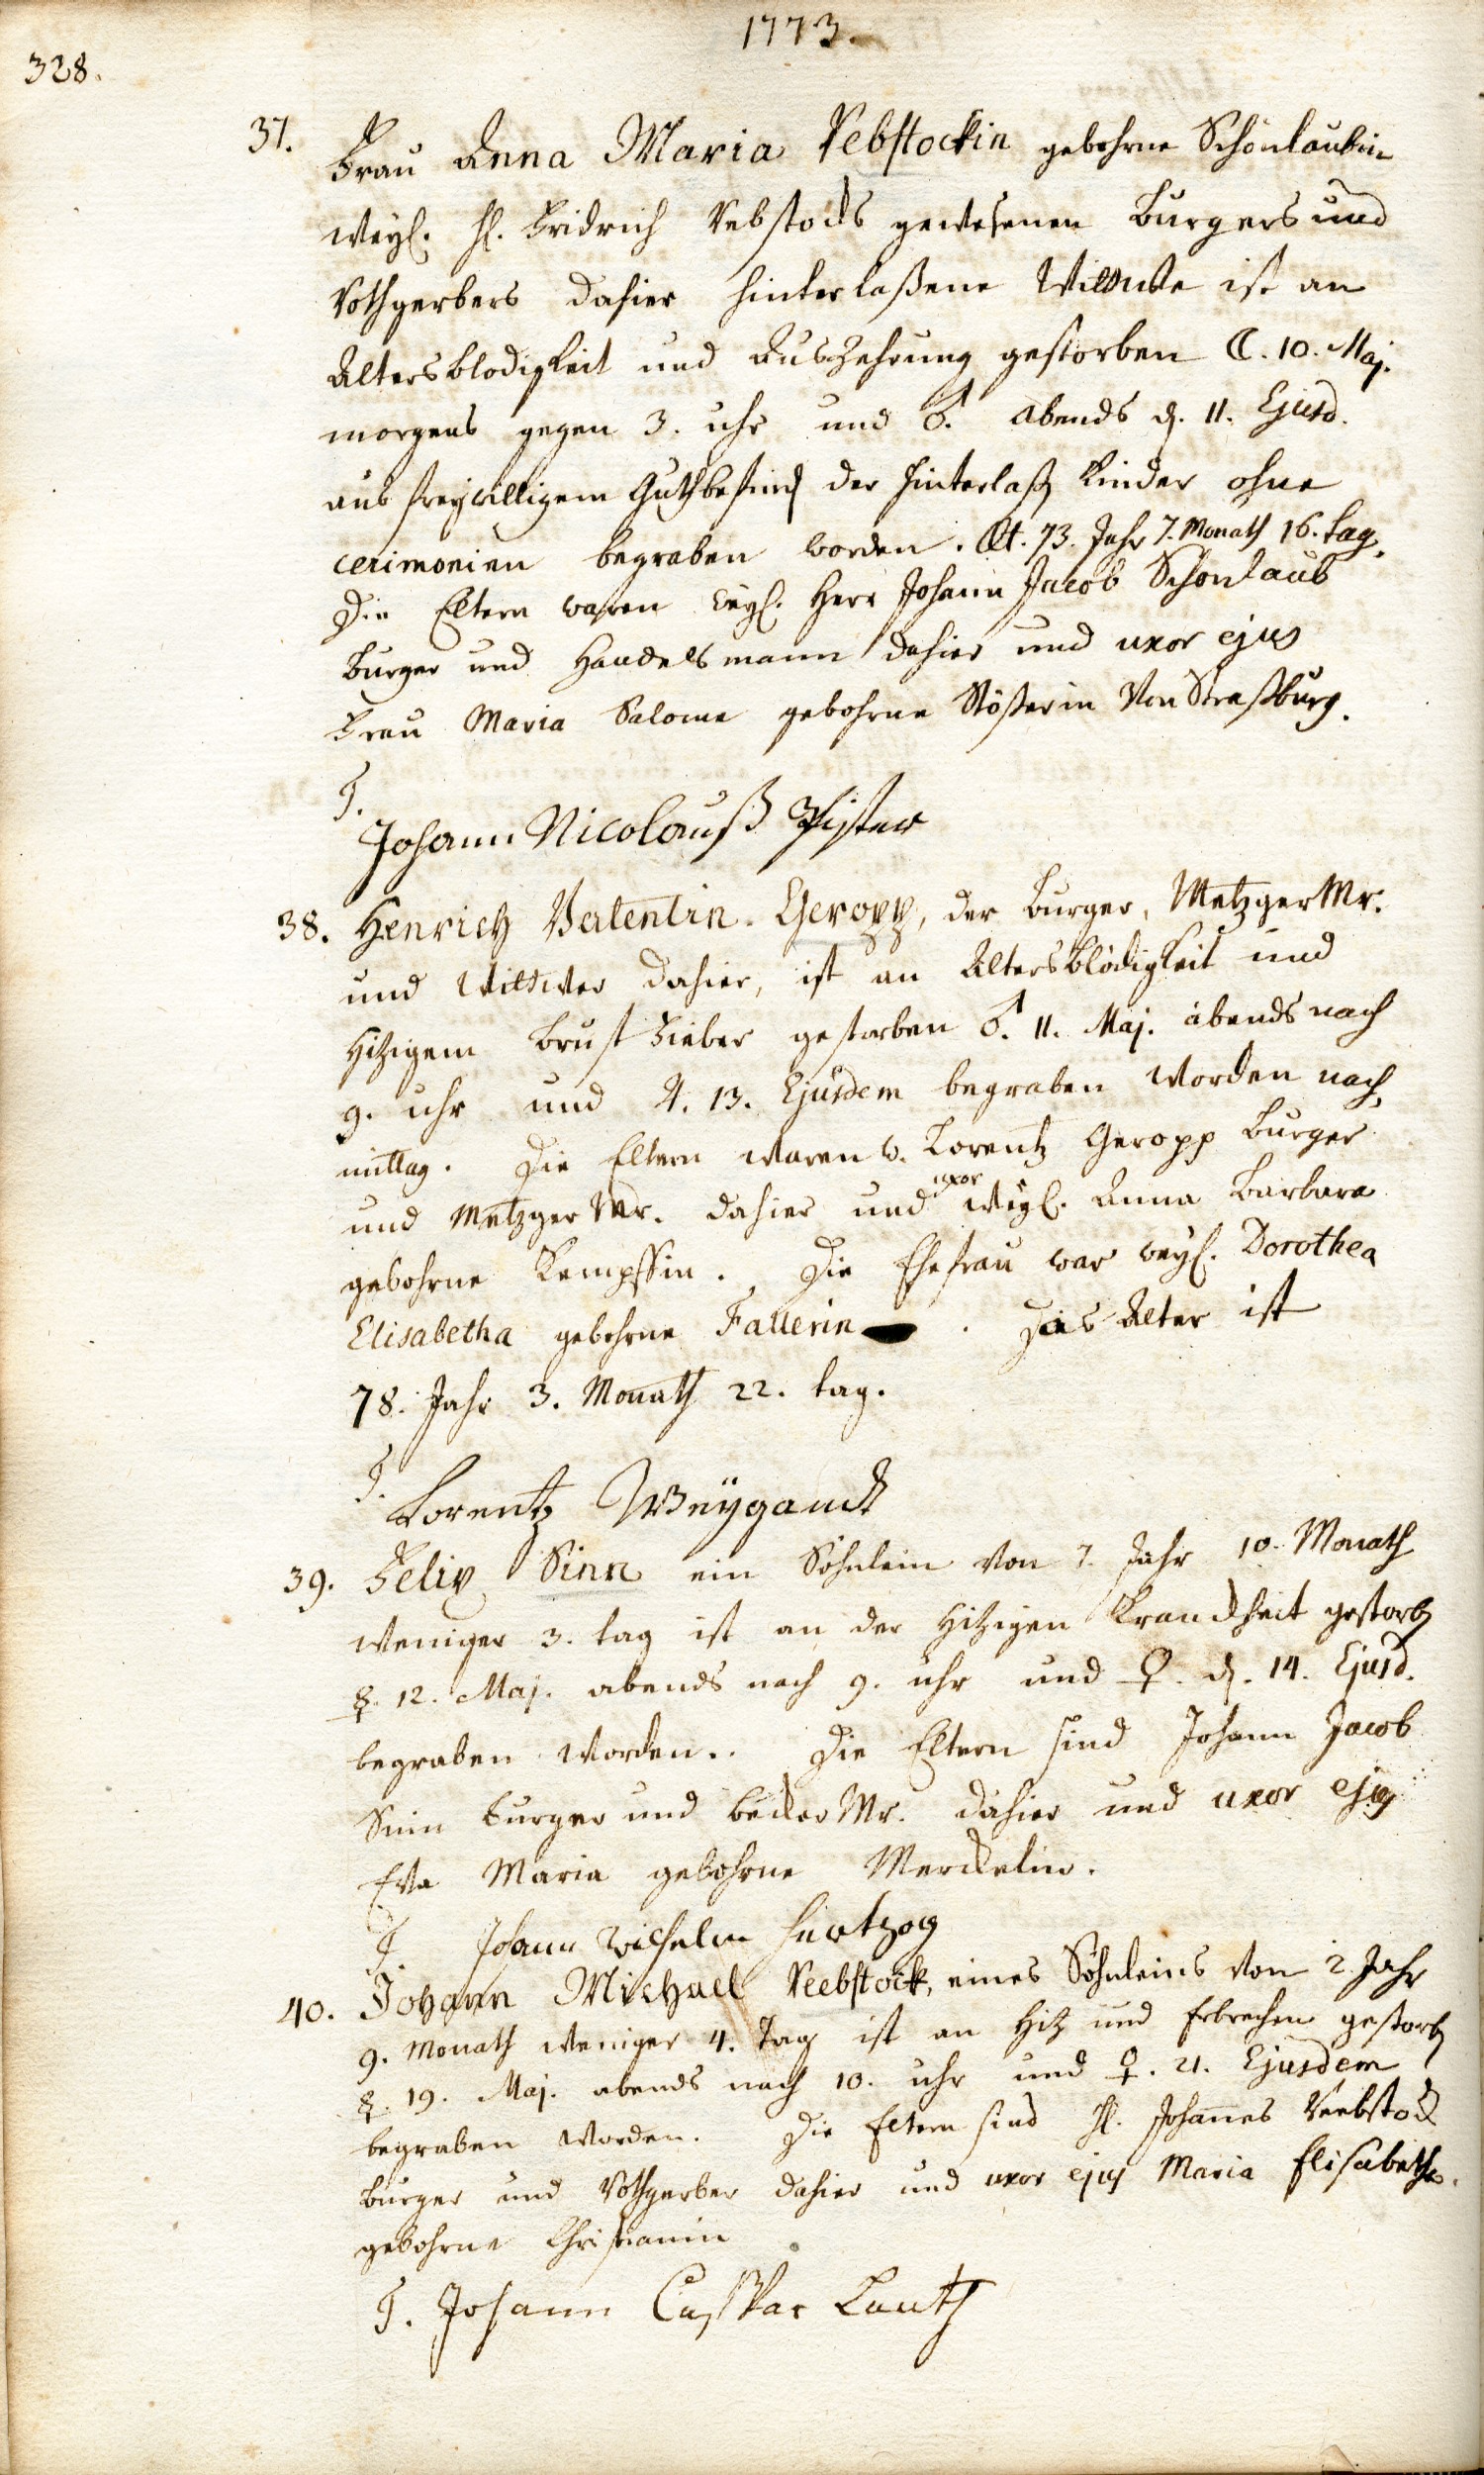 1773.
328.
37. Frau Anna Maria Rebstockin gebohrne Schönlaubin
weyl. H. Fridrich Rebstocks gewesenen Burgers und
Rothgerbers dahier hinterlaßene Wittwe ist an
Altersblödigkeit und Auszehrung gestorben ☾. 10. Maj.
morgens gegen 3. uhr und ♂. abends d. 11. Ejusd.
aus freywilligem Guthbefind der hinterlaß Kinder ohne
cerimonien begraben worden. Æt. 73. Jahr 7. Monath 16. tag.
Die Eltern waren weyl. Herr Johann Jacob Schönlaub
burger und Handelsmann dahier und uxor ejus
Frau Maria Salome gebohrne Stößerin Von Straßburg.
T.
Johann Nicolauß Pfister
38. Henrich Valentin Geropp, der burger, Metzger Mr.
und Wittwer dahier, ist an Altersblödigkeit und
hizigem Brust Fieber gestorben ♂. 11. Maj. abends nach
9. uhr und ♃. 13. Ejusdem begraben worden nach
mittag. Die Eltern waren w. Lorentz Geropp burger
und Metzger Mr. dahier und uxor weyl. Anna Barbara
gebohrne Kempffin. Die Ehefrau war weyl. Dorothea
Elisabetha gebohrne Fallerin. Das Alter ist
78. Jahr 3. Monath 22. tag.
T.
Lorentz Weÿgandt
39. Felix Sinn ein Söhnlein von 7. Jahr 10. Monath
weniger 3. tag ist an der hitzigen Kranckheit gestorb
☿. 12. Maj. abends nach 9. uhr und ♀. d. 14. Ejusd.
begraben worden. Die Eltern sind Johann Jacob
Sinn burger und becker Mr. dahier und uxor ejus
Eva Maria gebohrne Merckelin.
T. Johann Wilhelm Hertzog
40. Johann Michael Reebstock, eines Söhnleins von 2. Jahr
9. Monath weniger 4. Tag ist an Hitz und Erbrechen gestorb
☿. 19. Maj. abends nach 10. uhr und ♀. 21. Ejusdem
begraben worden. Die Eltern sind H. Johannes Reebstock
burger und Rothgerber dahier und uxor ejus Maria Elisabetha
gebohrne Christianin
T. Johann Casspar Lauth